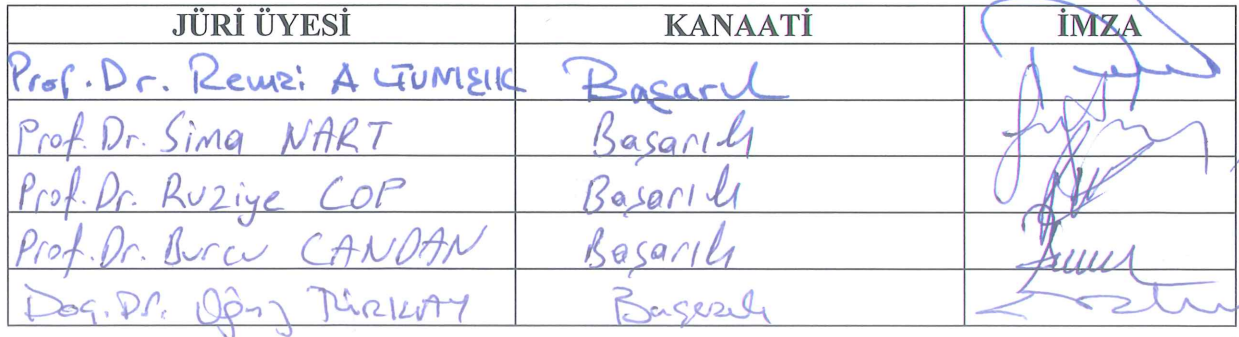 JÜRİ ÜYESİ KANAATİ İMZA
Prof. Dr. Remzi ALTUNIŞIK Başarılı
Prof. Dr. Sima NART Başarılı
Prof. Dr. Ruziye COP Başarılı
Prof. Dr. Burcu CANDAN Başarılı
Doç. Dr. Oğuz TÜRKAY Başarılı